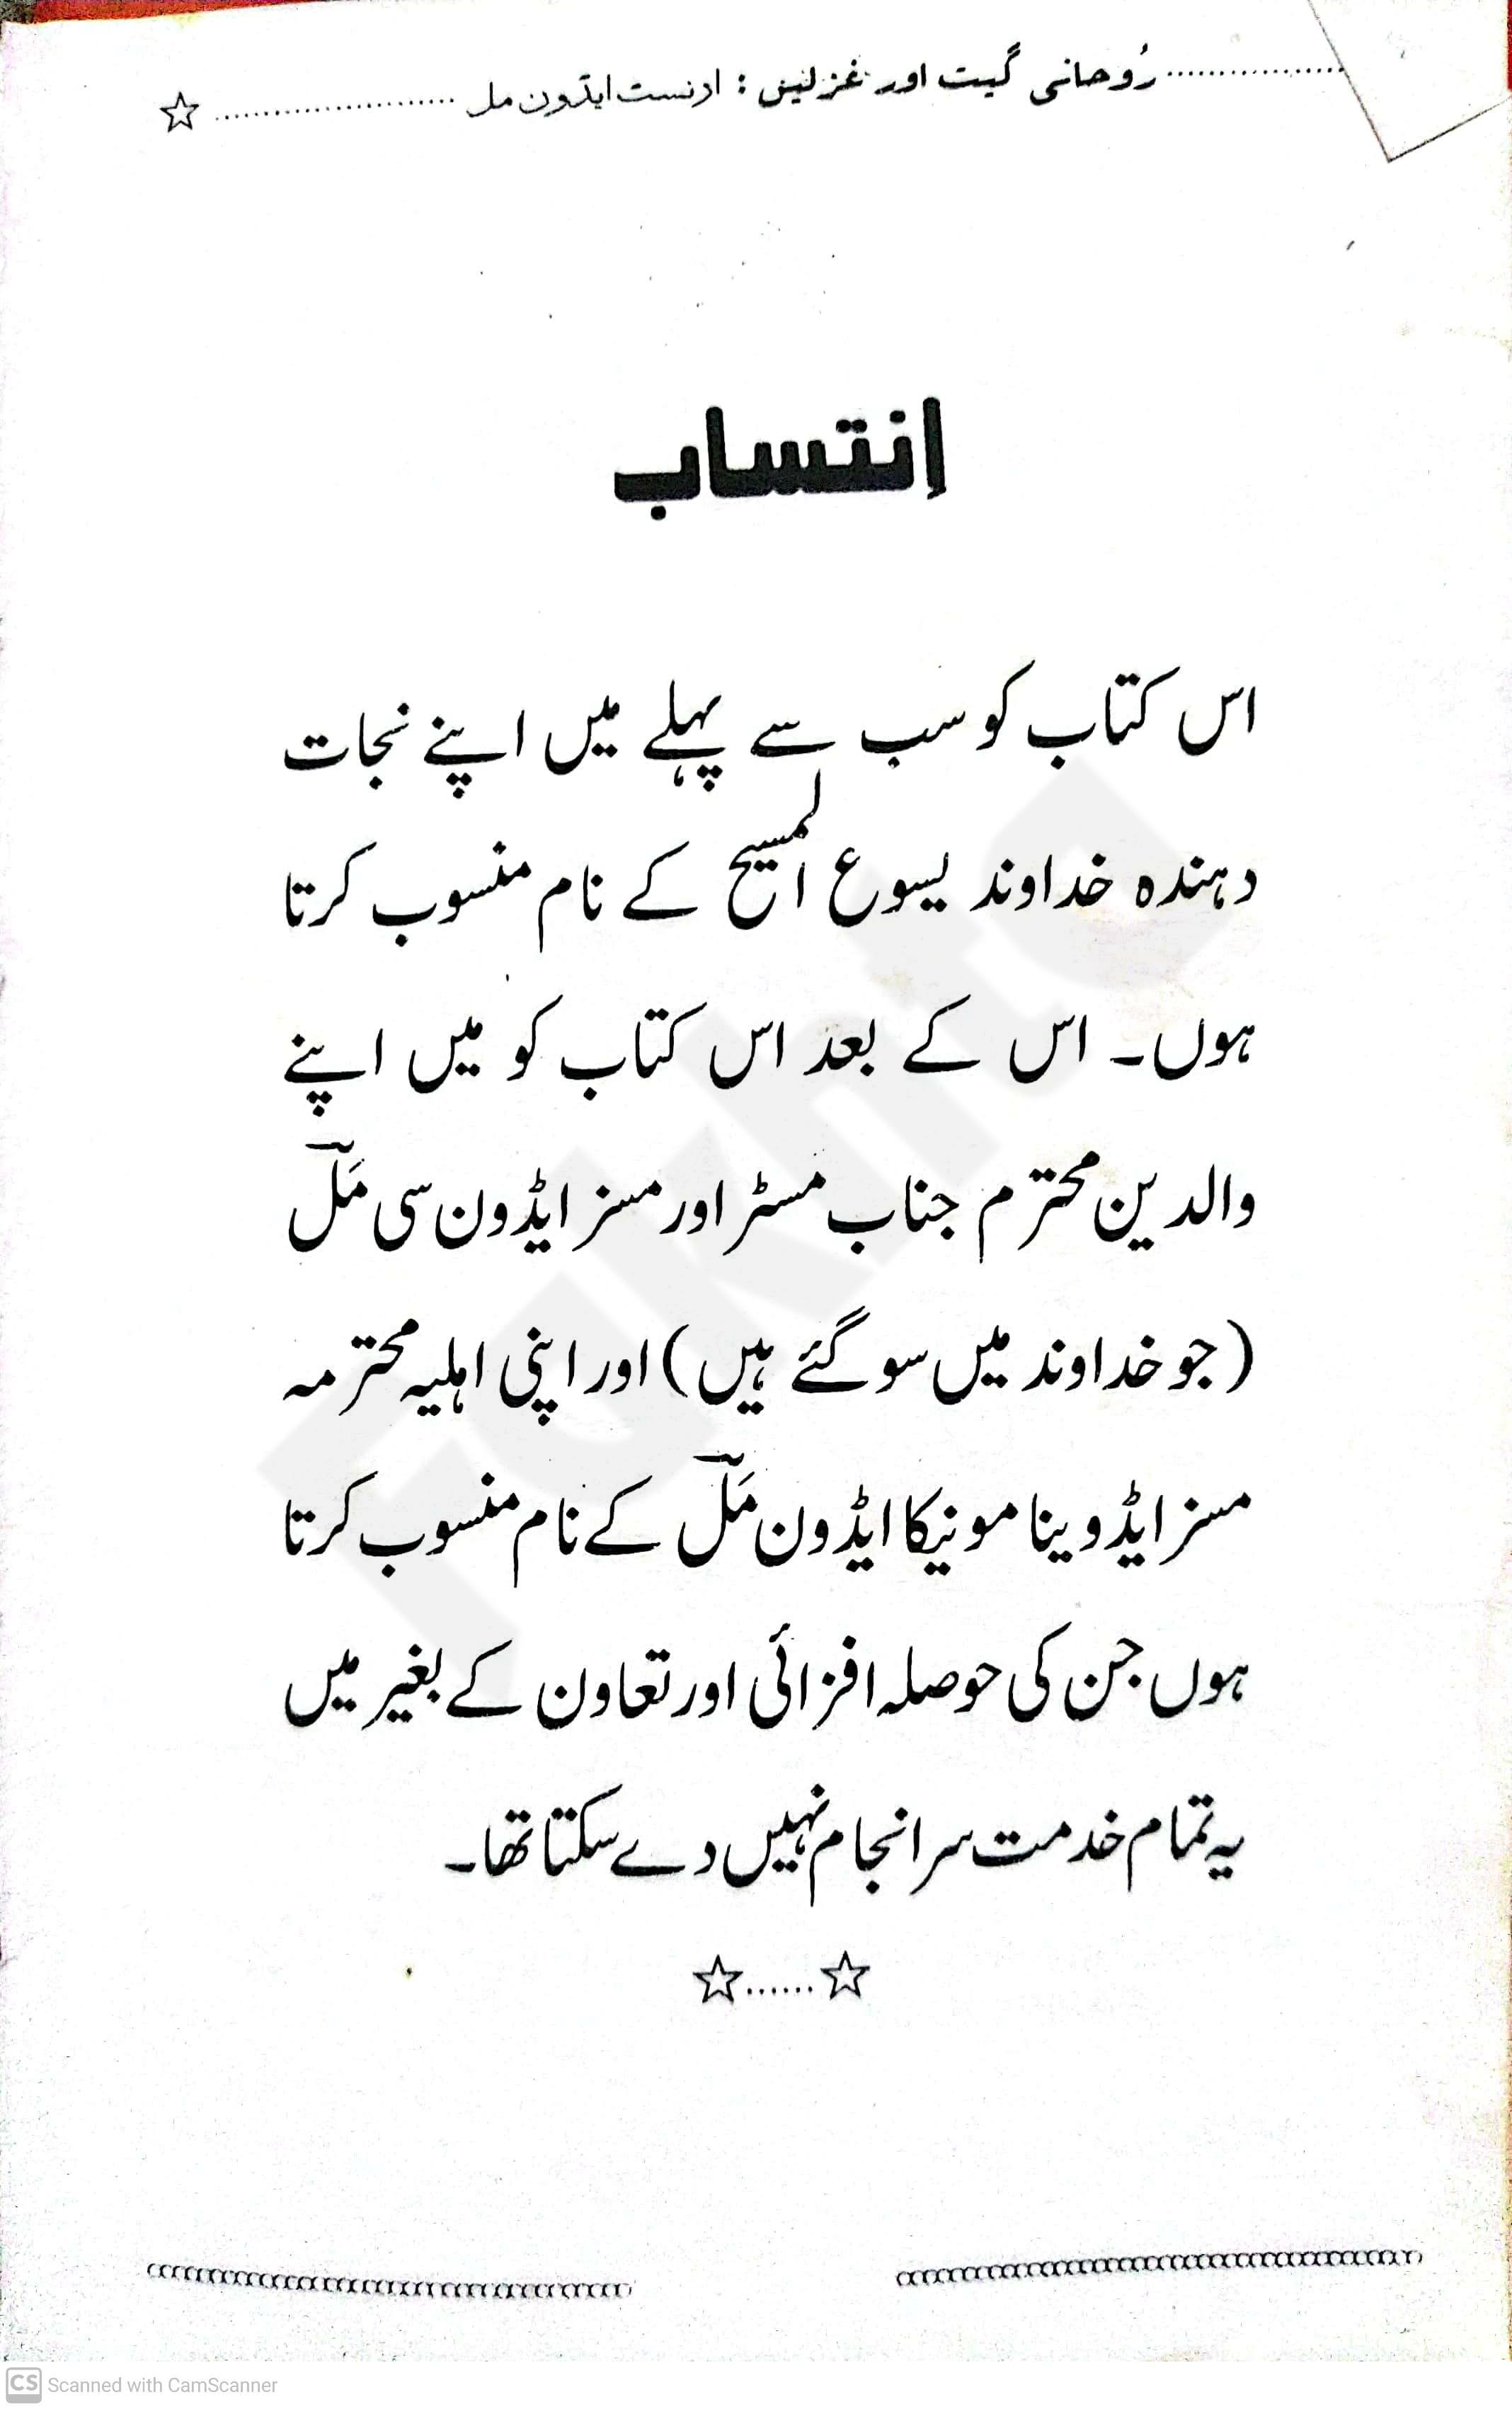 رُوحانی گیت اور غزلیں : ارنسٹ ایڈون مل
اِنتساب
اس کتاب کو سب سے پہلے میں اپنے نجات
دہندہ خداوند یسوع المسیح کے نام منسوب کرتا
ہوں۔ اس کے بعد اس کتاب کو میں اپنے
والدین محترم جناب مسٹر اور مسز ایڈون سی مَل
(جو خداوند میں سو گئے ہیں) اور اپنی اہلیہ محترمہ
مسز ایڈوینا مونیکا ایڈون مَل کے نام منسوب کرتا
ہوں جن کی حوصلہ افزائی اور تعاون کے بغیر میں
یہ تمام خدمت سرانجام نہیں دے سکتا تھا۔
☆......☆
CS Scanned with CamScanner